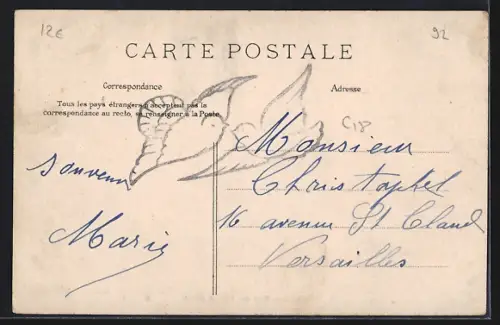 12€
92
CARTE POSTALE
Correspondance
Adresse
Tous les pays étrangers n'acceptent pas la
correspondance au recto, se renseigner à la Poste.
C18
Souvenir
Marie
Monsieur
Christophel
16 avenue St Cloud
Versailles